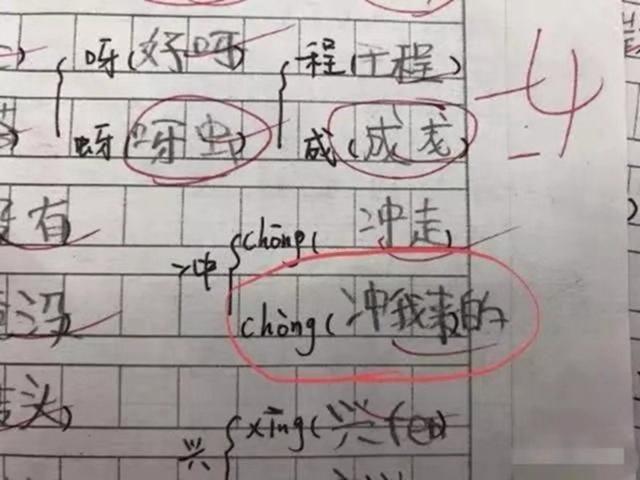 呀(好呀) 程(程)
-4
蚜(呀虫) 成(成
有) chōng(冲走)
冲
没) chòng(冲我来的
头) xīng(兴fèn)
兴